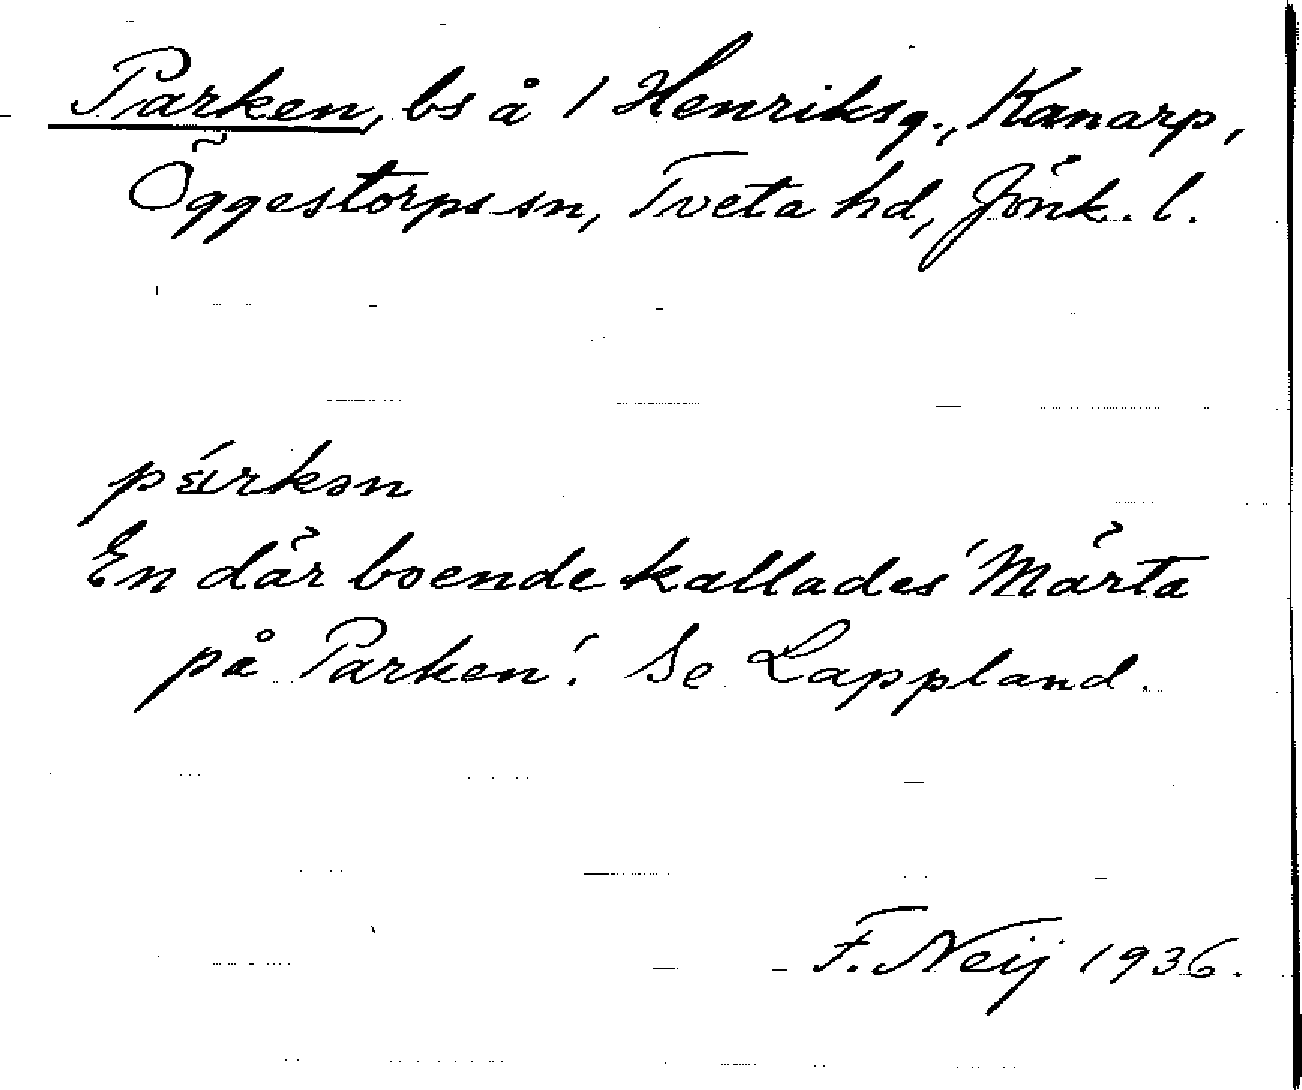 Parken, bs å 1 Henriksg., Kanarp,
Öggestorps sn, Tveta hd, Jönk. l.
párkən
En där boende kallades 'Märta
på Parken'. Se Lappland.
F. Neij 1936.